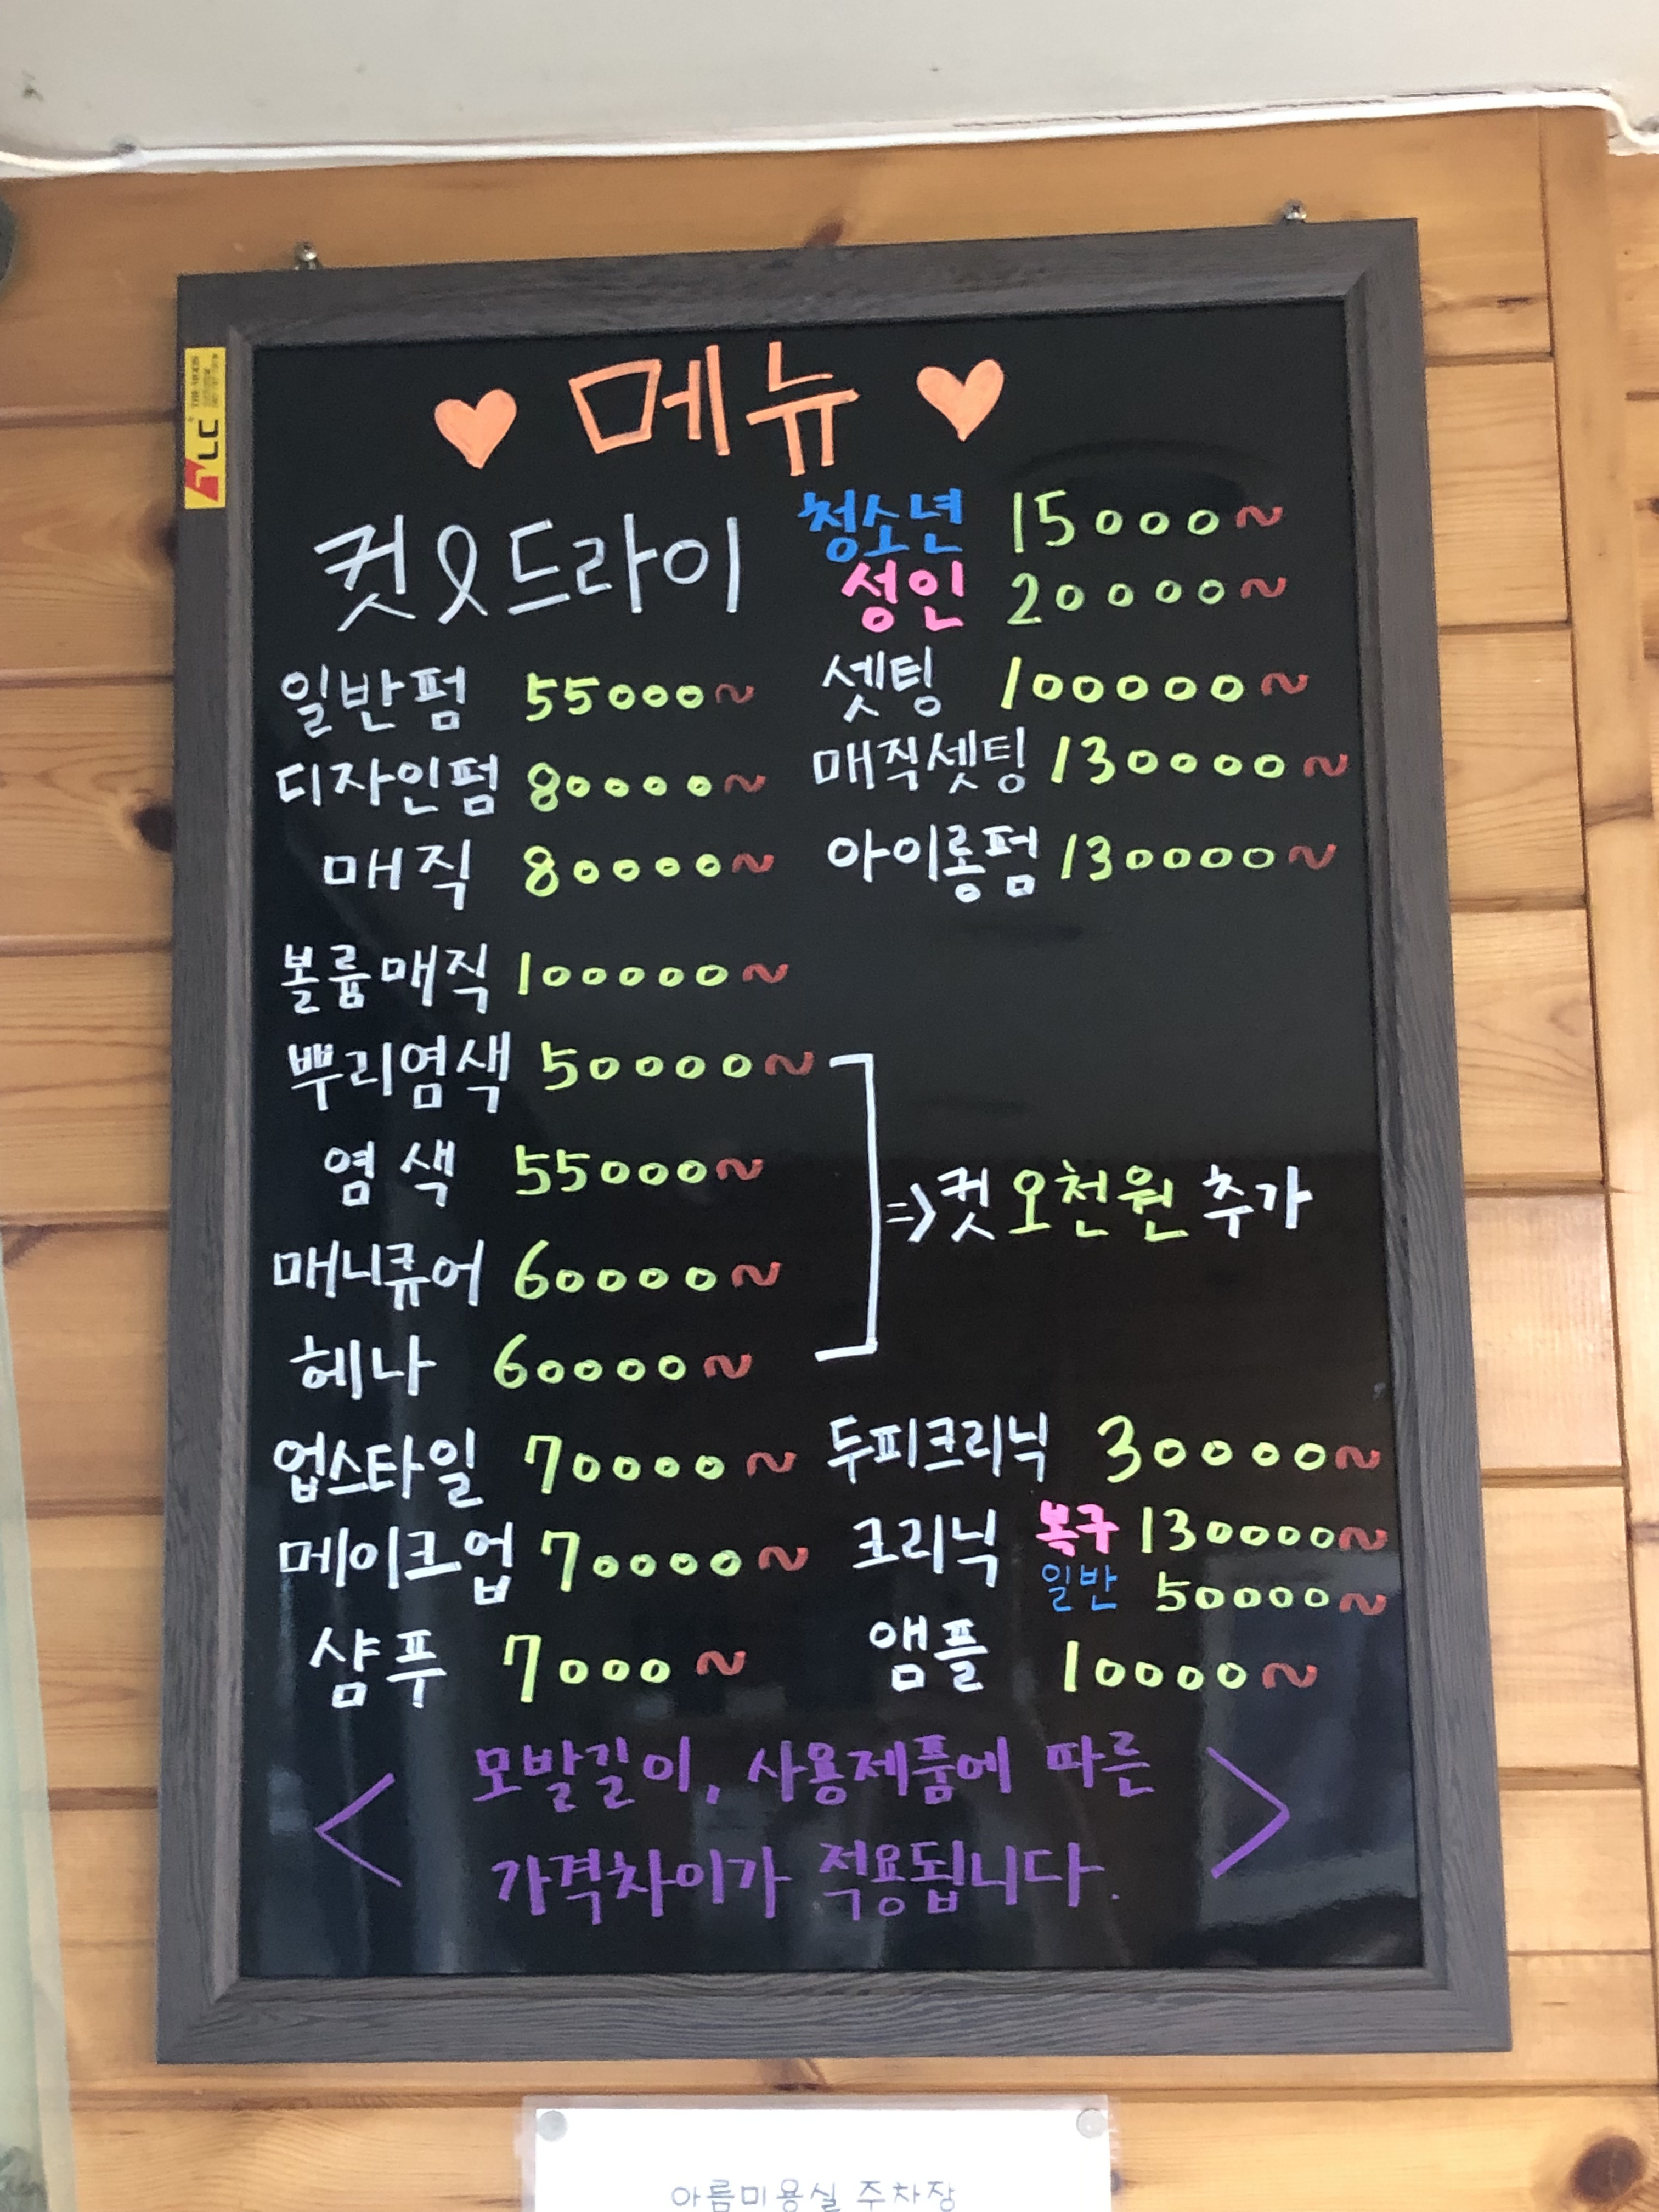 ♥ 메뉴 ♥
컷&드라이 청소년 15000~
성인 20000~
일반펌 55000~ 셋팅 100000~
디자인펌 80000~ 매직셋팅 130000~
매직 80000~ 아이롱펌 130000~
볼륨매직 100000~
뿌리염색 50000~
염색 55000~
⇒컷 오천원 추가
매니큐어 60000~
헤나 60000~
업스타일 70000~ 두피크리닉 30000~
메이크업 70000~ 크리닉 복구 130000~
일반 50000~
샴푸 7000~ 앰플 10000~
<모발길이, 사용제품에 따른
가격차이가 적용됩니다.>
아름미용실 주차장